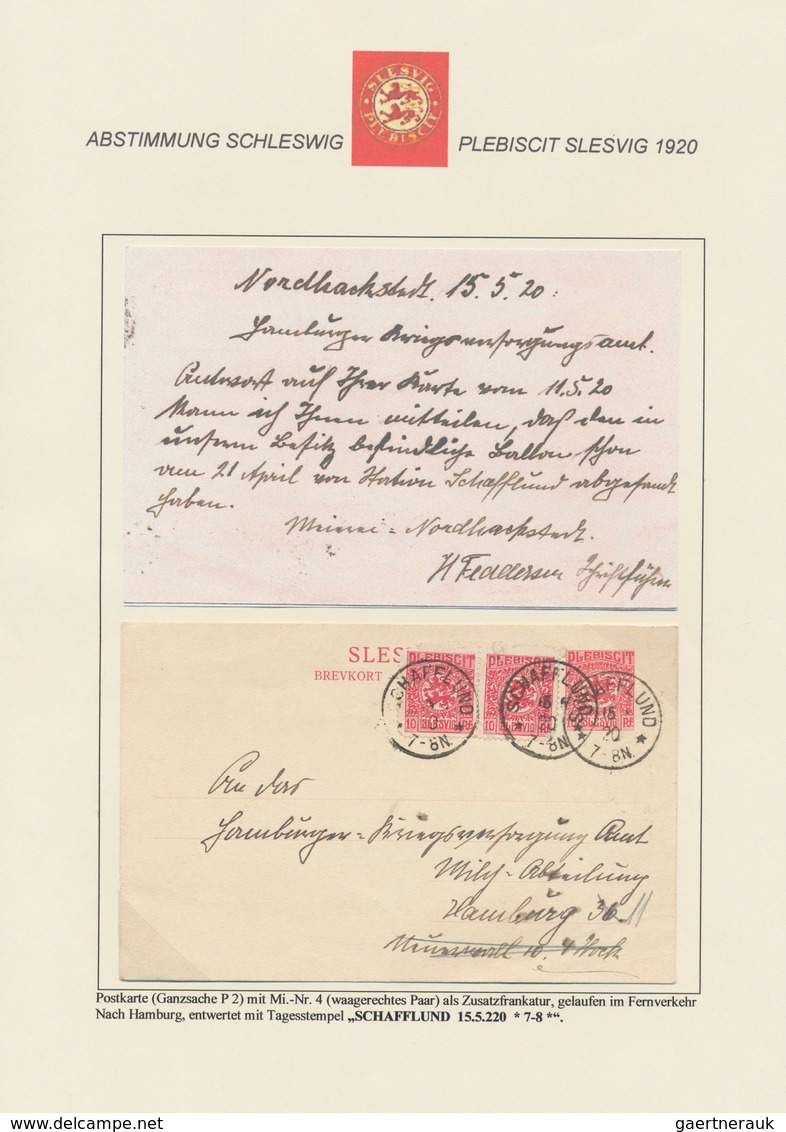 SLESVIG
PLEBISCIT
ABSTIMMUNG SCHLESWIG
PLEBISCIT SLESVIG 1920
Nordhackstedt. 15.5.20.
Hamburger Kriegsversorgungsamt.
Antwort auf Ihrer Karte vom 11.5.20
kann ich Ihnen mitteilen, daß den in
unserm Besitz befindliche Ballon schon
am 21 April von Station Schafflund abgesandt
haben.
Meierei-Nordhackstedt.
H Feddersen Schriftführer
SLES
BREVKORT
PLEBISCIT
10 SLESVIG PF.
PLEBISCIT
10 SLESVIG PF.
PLEBISCIT
SLESVIG PF.
SCHAFFLUND
20
7-8N.
SCHAFFLUND
15
20
7-8N.
SCHAFFLUND
15
20
7-8N.
An das
Hamburger-Kriegsversorgung Amt
Milch-Abteilung
Hamburg 36. 11
Neuerwall 10. 4 Stock
Postkarte (Ganzsache P 2) mit Mi.-Nr. 4 (waagerechtes Paar) als Zusatzfrankatur, gelaufen im Fernverkehr
Nach Hamburg, entwertet mit Tagesstempel „SCHAFFLUND 15.5.220 * 7-8 *“.
gaertnerauk / delcampe.net